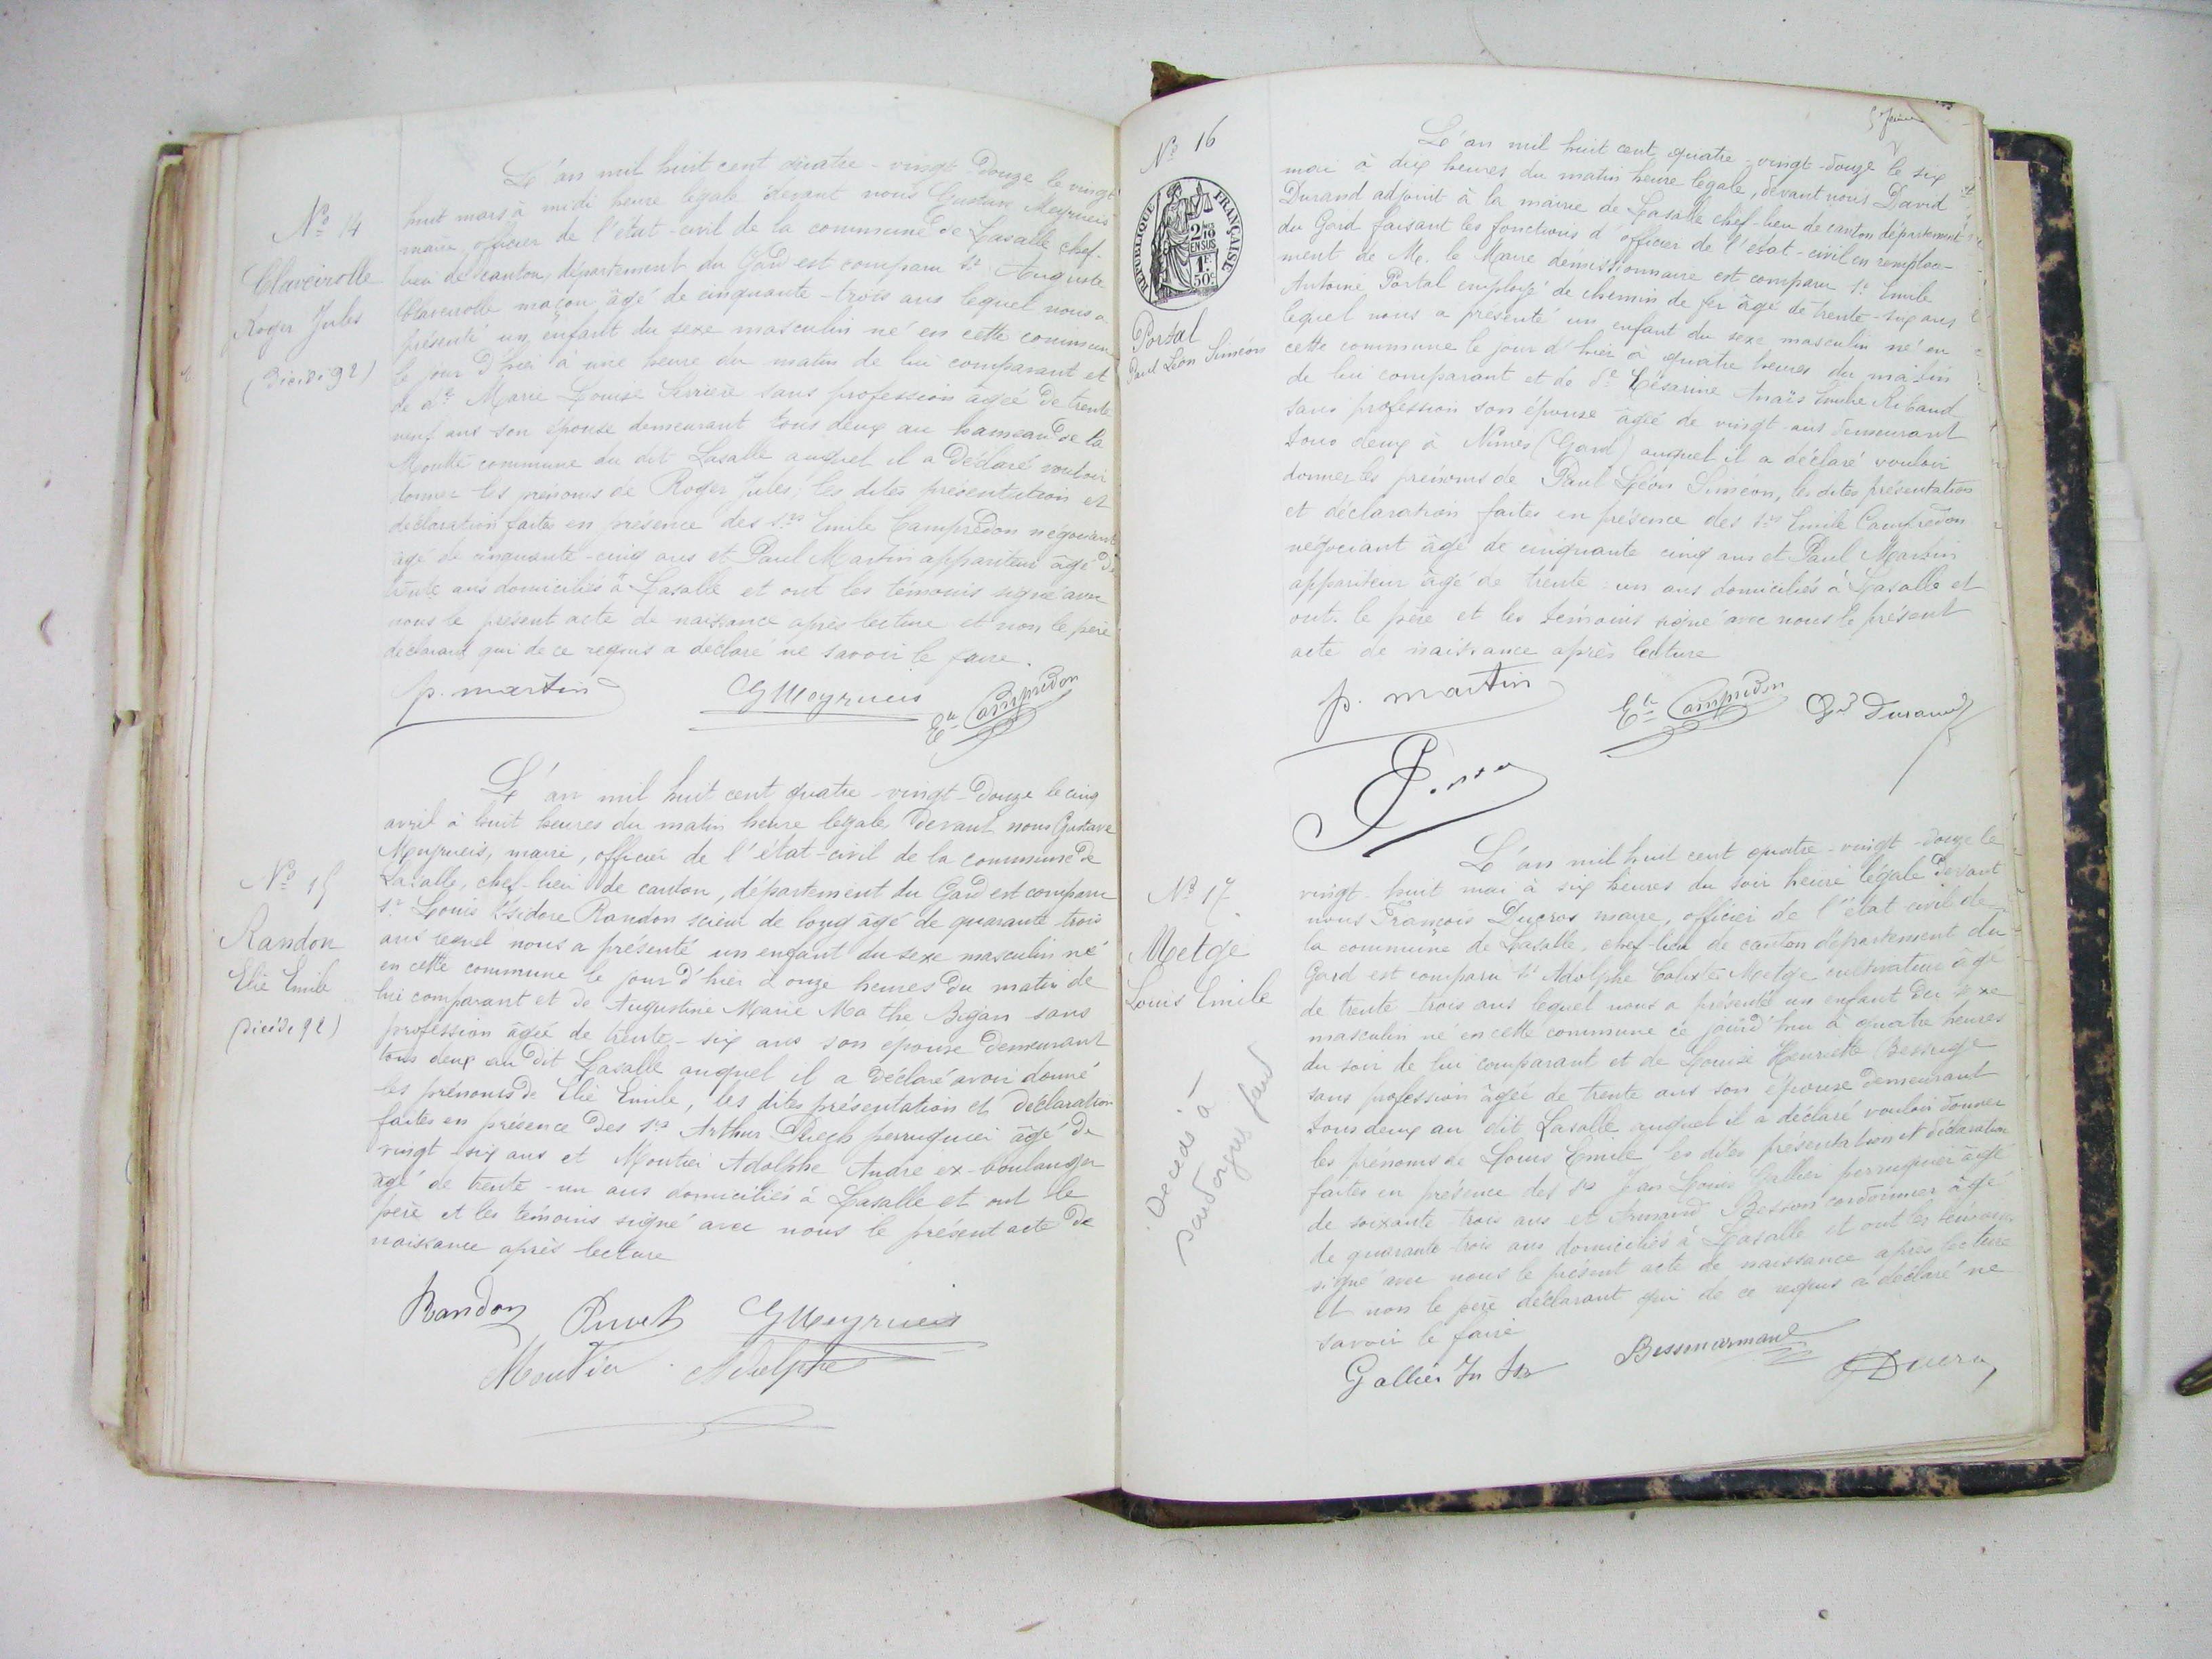 Nº 14
Claveirolle
Roger Jules
(Décédé 92)
L'an mil huit cent quatre-vingt Douze le vingt
huit mars à midi heure légale devant nous Gustave Meyrueis
maire, officier de l'état-civil de la commune de Lasalle chef-
lieu de canton, département du Gard est comparu Sr Auguste
Claveirolle maçon âgé de cinquante-trois ans lequel nous a
présenté un enfant du sexe masculin né en cette commune
le jour D'hier à une heure du matin de lui comparant et
de de Marie Louise sans profession âgée de trente
neuf ans son épouse demeurant tous deux au hameau de la
commune du dit Lasalle auquel il a Déclaré vouloir
donner les prénoms de Roger Jules, les dites présentation et
déclaration faites en présence des srs Emile Campredon négociant
âgé de cinquante-cinq ans et Paul Martin appariteur âgé de
trente ans domiciliés à Lasalle et ont les témoins signé avec
nous le présent acte de naissance après lecture et non le père
déclarant qui de ce requis a déclaré ne savoir le faire.
p. martin
G Meyrueis
Ele Campredon
Nº 15
Randon
Elie Emile
(Décédé 92)
L'an mil huit cent quatre-vingt-Douze le cinq
avril à huit heures du matin heure légale Devant nous Gustave
Meyrueis, maire, officier de l'état-civil de la commune De
Lasalle, chef-lieu de canton, département du Gard est comparu
sr Louis Isidore Randon scieur de long âgé de quarante-trois
ans lequel nous a présenté un enfant du sexe masculin né
en cette commune le jour d'hier à onze heures Du matin de
lui comparant et de Augustine Marie sans
profession âgée de trente-six ans son épouse Demeurant
tous deux au Dit Lasalle auquel il a Déclaré avoir donné
les prénoms De Elie Emile, les dites présentation et Déclaration
faites en présence Des srs Arthur perruquier âgé De
vingt-six ans et Moutier Adolphe André ex-boulanger
âgé de trente-un ans domiciliés à Lasalle et ont le
père et les témoins signé avec nous le présent acte De
naissance après lecture
Randon G Meyrueis
Moutier Adolphe
Nº 16
RÉPUBLIQUE FRANÇAISE
2 10
EN SUS
1F
50c
Portal
Paul Léon Siméon
L'an mil huit cent quatre-vingt-douze le six
mai à dix heures du matin heure légale, devant nous David
Durand adjoint à la mairie de Lasalle chef-lieu de canton département
du Gard faisant les fonctions d'officier de l'état-civil en remplace-
ment de Mr. le Maire démissionnaire est comparu sr Emile
Antoine Portal employé de chemin de fer âgé de trente-six ans
lequel nous a présenté un enfant du sexe masculin né en
cette commune le jour d'hier à quatre heures du matin
de lui comparant et de de Césarine Anaïs Ribaud
sans profession son épouse âgée de vingt-ans demeurant
tous deux à Nimes (Gard) auquel il a déclaré vouloir
donner les prénoms de Paul Léon Siméon, les dites présentation
et déclaration faites en présence des srs Emile Campredon
négociant âgé de cinquante cinq ans et Paul Martin
appariteur âgé de trente-un ans domiciliés à Lasalle et
ont le père et les témoins signé avec nous le présent
acte de naissance après lecture
p. martin
Ele Campredon
Dd Durand
Nº 17
Metge
Louis Emile
Décédé à
gard
L'an mil huit cent quatre-vingt-douze le
vingt-huit mai à six heures du soir heure légale Devant
nous François Ducros maire, officier de l'état civil de
la commune de Lasalle, chef-lieu de canton département du
Gard est comparu sr Adolphe Calixte Metge cultivateur âgé
de trente-trois ans lequel nous a présenté un enfant du sexe
masculin né en cette commune ce jourd'hui à quatre heures
du soir de lui comparant et de Louise Henriette
sans profession âgée de trente ans son épouse Demeurant
tous deux au dit Lasalle auquel il a déclaré vouloir donner
les prénoms de Louis Emile les dites présentation et déclaration
faites en présence des srs Jean Louis Gallier perruquier âgé
de soixante-trois ans et Armand Besson cordonnier âgé
de quarante-trois ans domiciliés à Lasalle et ont les témoins
signé avec nous le présent acte de naissance après lecture
et non le père déclarant qui de ce requis a déclaré ne
savoir le faire
Gallier Jn